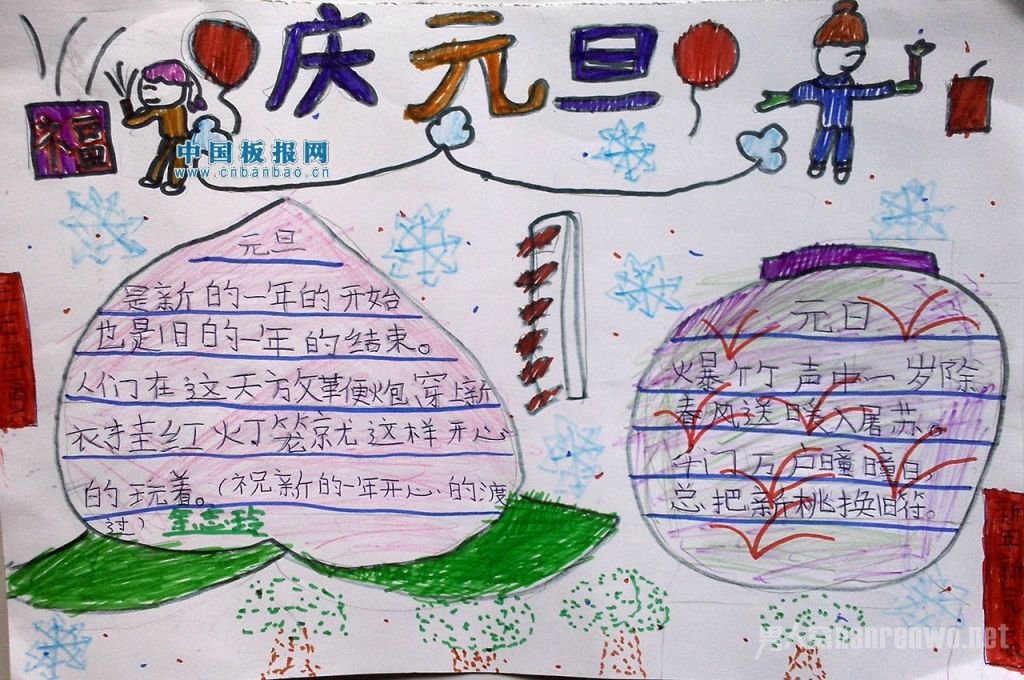 庆元旦
福
中国板报网
www.cnbanbao.cn
元旦
是新的一年的开始
也是旧的一年的结束。
人们在这天方文革便火炮,穿上新
衣挂红灯笼就这样开心
的玩着。(祝新的一年开心的渡
过)
元日
爆竹声中一岁除,
春风送暖入屠苏。
千门万户曈曈日,
总把新桃换旧符。
nanrenwo.net